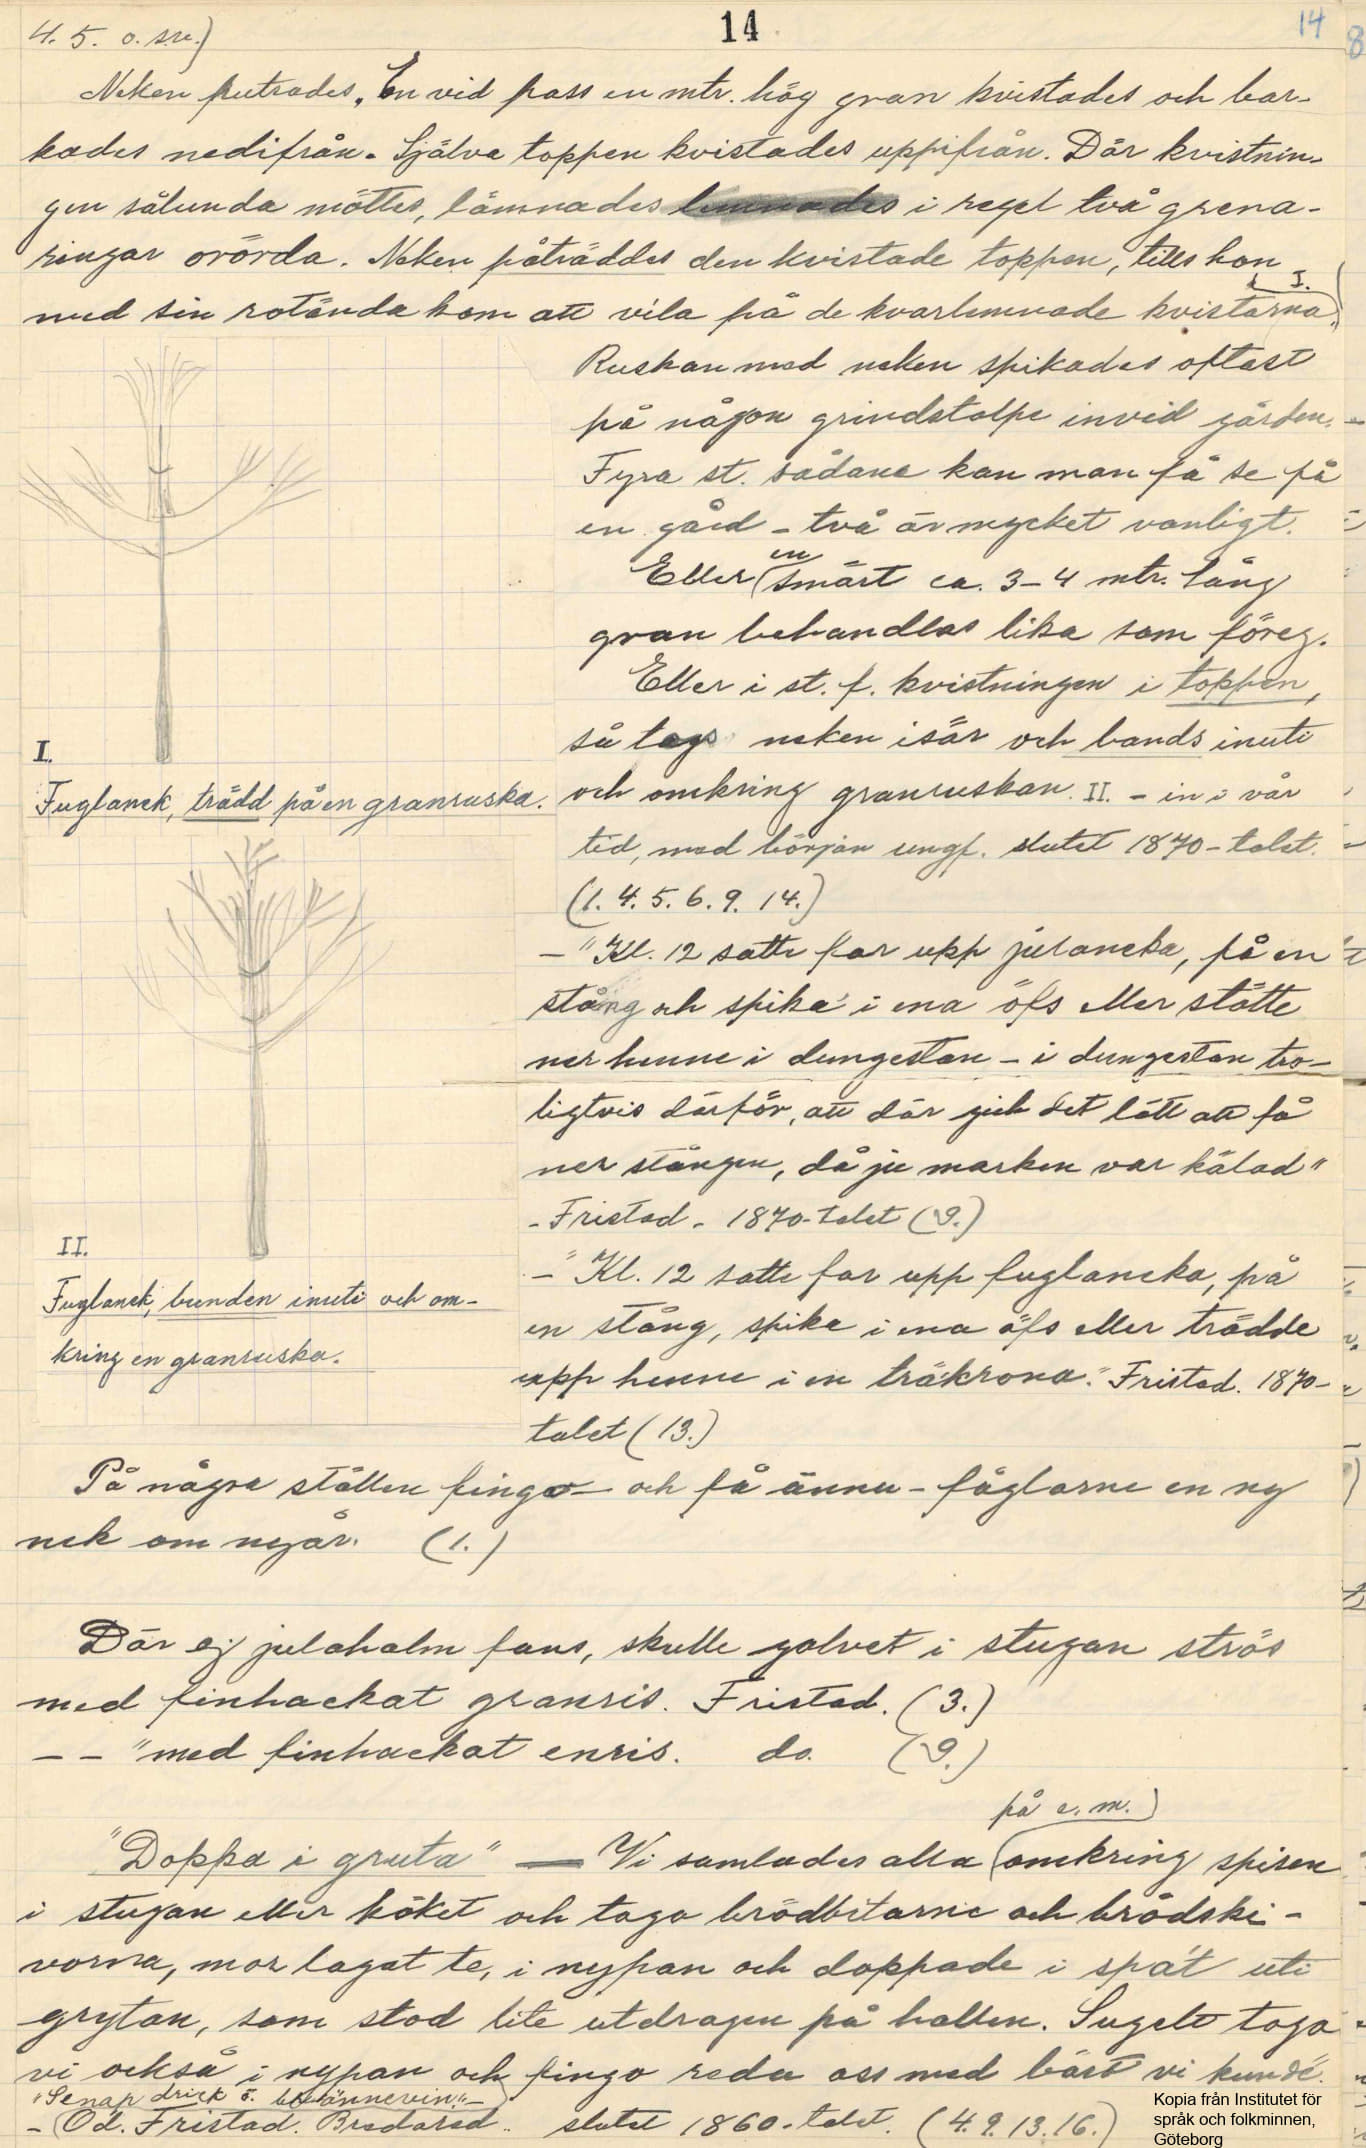 14
14
8
4. 5. o. sn.)
Neken putsades. En vid pass en mtr. hög gran kvistades och bar-
kades nedifrån. Själva toppen kvistades uppifrån. Där kvistnin-
gen sålunda möttes, lämnades lemnades i regel två grena-
ringar orörda. Neken påträddes den kvistade toppen, tills hon
med sin rotända kom att vila på de kvarlemnade kvistarna I.
Ruskan med neken spikades oftast
på någon grindstolpe invid gården.
Fyra st. sådana kan man få se på
en gård – två är mycket vanligt.
Eller en smärt ca. 3–4 mtr. lång
gran behandlas lika som föreg.
Eller i st. f. kvistningen i toppen,
så togs neken isär och bands inuti
och omkring granruskan. II. – in i vår
tid, med början ungf. slutet 1870-talet.
(1. 4. 5. 6. 9. 14.)
I.
Fuglanek, trädd på en granruska.
II.
Fuglanek, bunden inuti och om-
kring en granruska.
– "Kl. 12 satte far upp julaneka, på en
stång och spika' i ena öfs eller stötte
ner henne i dungestan – i dungestan tro-
ligtvis därför, att där gick det lätt att få
ner stången, då ju marken var kälad"
– Fristad – 1870-talet (9.)
– "Kl. 12 satte far upp fuglaneka, på
en stång, spika i ena öfs eller trädde
upp henne i en träkrona." Fristad. 1870-
talet (13.)
På några ställen fingo – och få ännu – fåglarne en ny
nek om nyår. (1.)
Där ej julahalm fans, skulle golvet i stugan strös
med finhackat granris. Fristad. (3.)
– – "med finhackat enris. do. (9.)
"Doppa i gruta" — Vi samlades alla på e. m. omkring spisen
i stugan eller köket och togo brödbitarne och brödski-
vorna, mor lagat te, i nypan och doppade i spa't uti
grytan, som stod lite utdragen på hallen. Sugelt togo
vi också i nypan och fingo reda oss med bäst vi kunde.
"Senap drick o. brännevin" –
– Od. Fristad. Bredared. slutet 1860-talet. (4. 9. 13. 16.)
Kopia från Institutet för
språk och folkminnen,
Göteborg